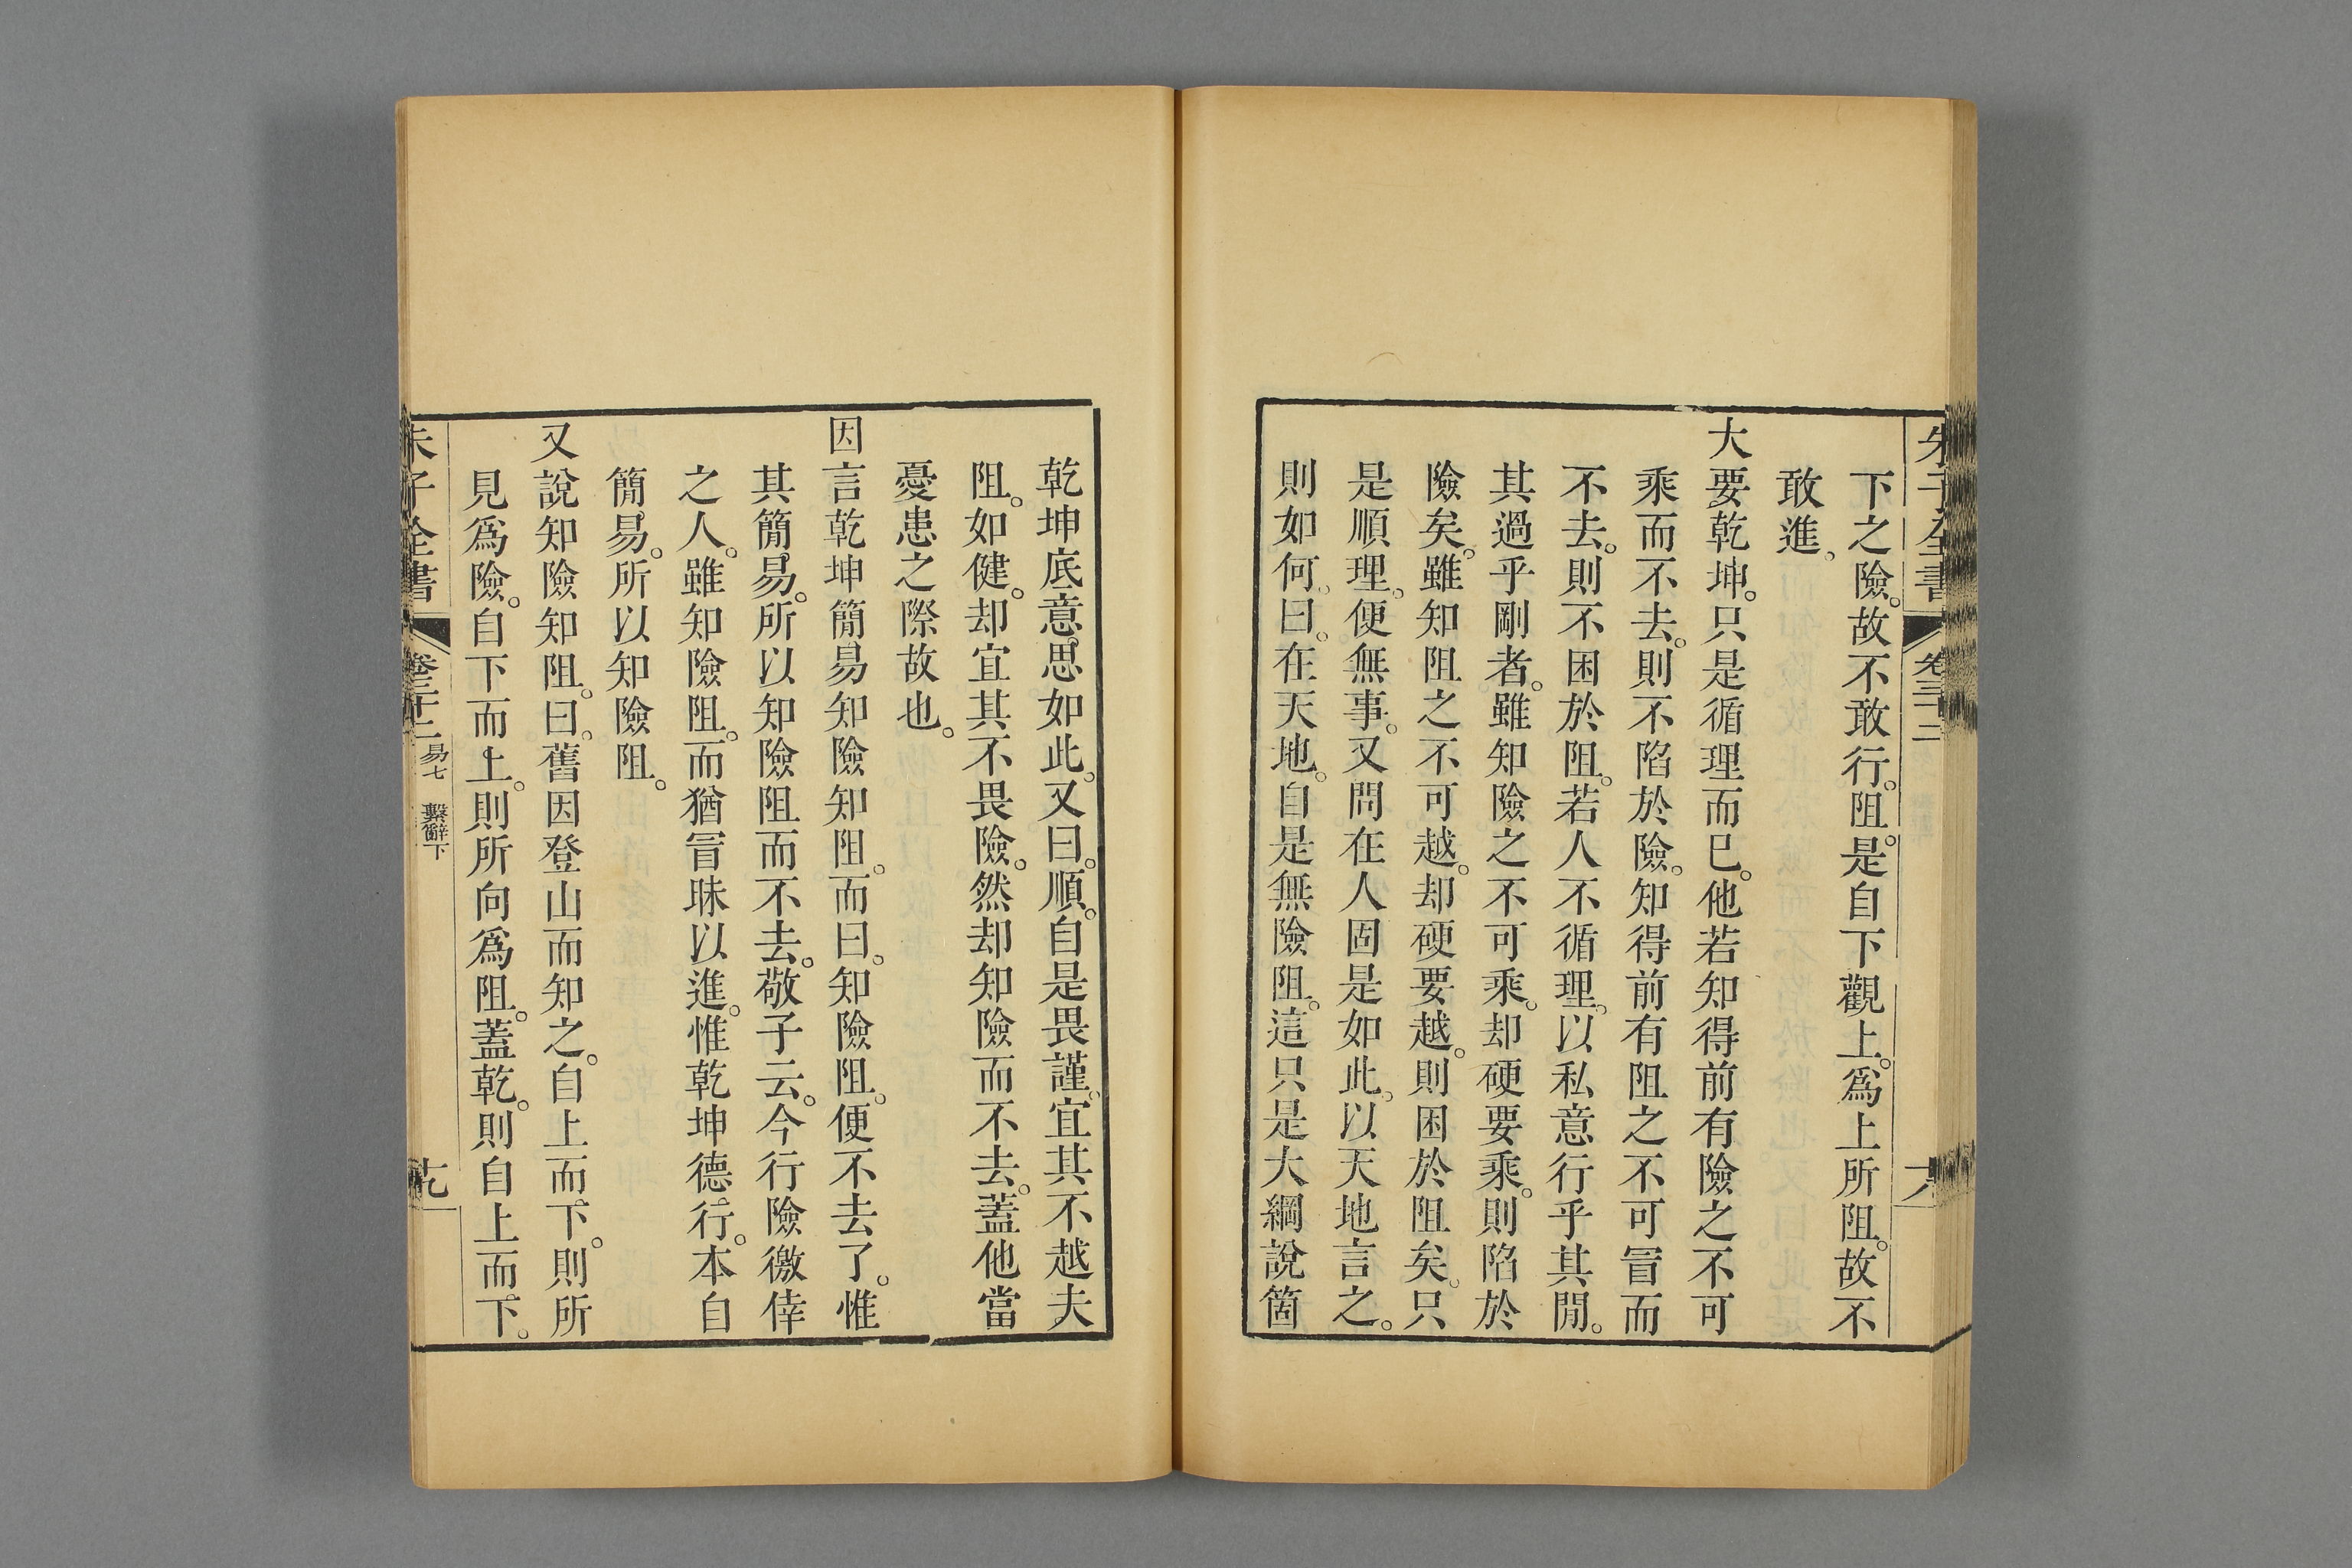 朱子全書 卷三十二
下之險。故不敢行。阻。是自下觀上。爲上所阻。故不
敢進。
大要乾坤。只是循理而已。他若知得前有險之不可
乘而不去。則不陷於險。知得前有阻之不可冒而
不去。則不困於阻。若人不循理。以私意行乎其閒。
其過乎剛者。雖知險之不可乘。却硬要乘。則陷於
險矣。雖知阻之不可越。却硬要越。則困於阻矣。只
是順理。便無事。又問在人固是如此。以天地言之。
則如何。曰。在天地。自是無險阻。這只是大綱說箇
乾坤底意思如此。又曰。順。自是畏謹。宜其不越夫
阻。如健。却宜其不畏險。然却知險而不去。蓋他當
憂患之際故也。
因言乾坤簡易知險知阻。而曰。知險阻。便不去了。惟
其簡易。所以知險阻而不去。敬子云。今行險徼倖
之人。雖知險阻。而猶冒昧以進。惟乾坤德行。本自
簡易。所以知險阻。
又說知險知阻。曰。舊因登山而知之。自上而下。則所
見爲險。自下而上。則所向爲阻。蓋乾。則自上而下。
朱子全書 卷三十二 易七 繫辭下